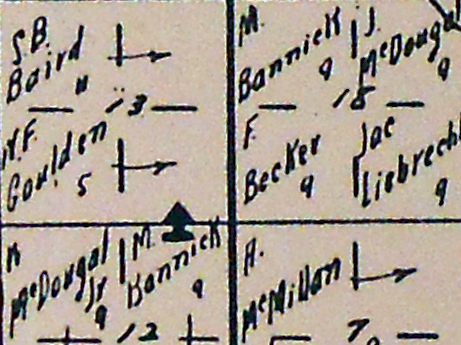 S.B.
Baird
11
13
N.F.
Goulden
5
M.
Bannick
9
J.
McDougal
9
18
F.
Becker
9
Jac
Liebrecht
9
McDougal
Jr
9
M.
Bannick
9
12
A.
McMillan
7
9